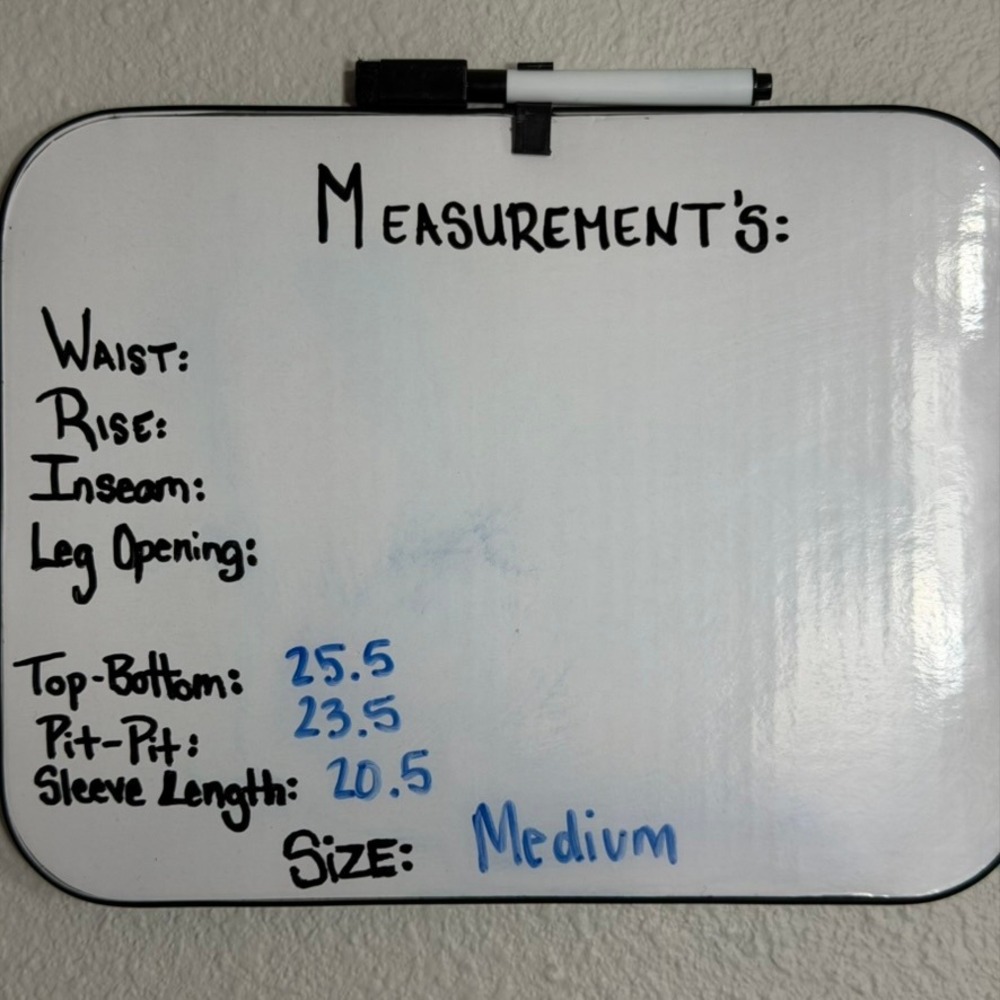 MEASUREMENT'S:
WAIST:
RISE:
Inseam:
Leg Opening:
Top-Bottom: 25.5
Pit-Pit: 23.5
Sleeve Length: 20.5
SiZE: Medium